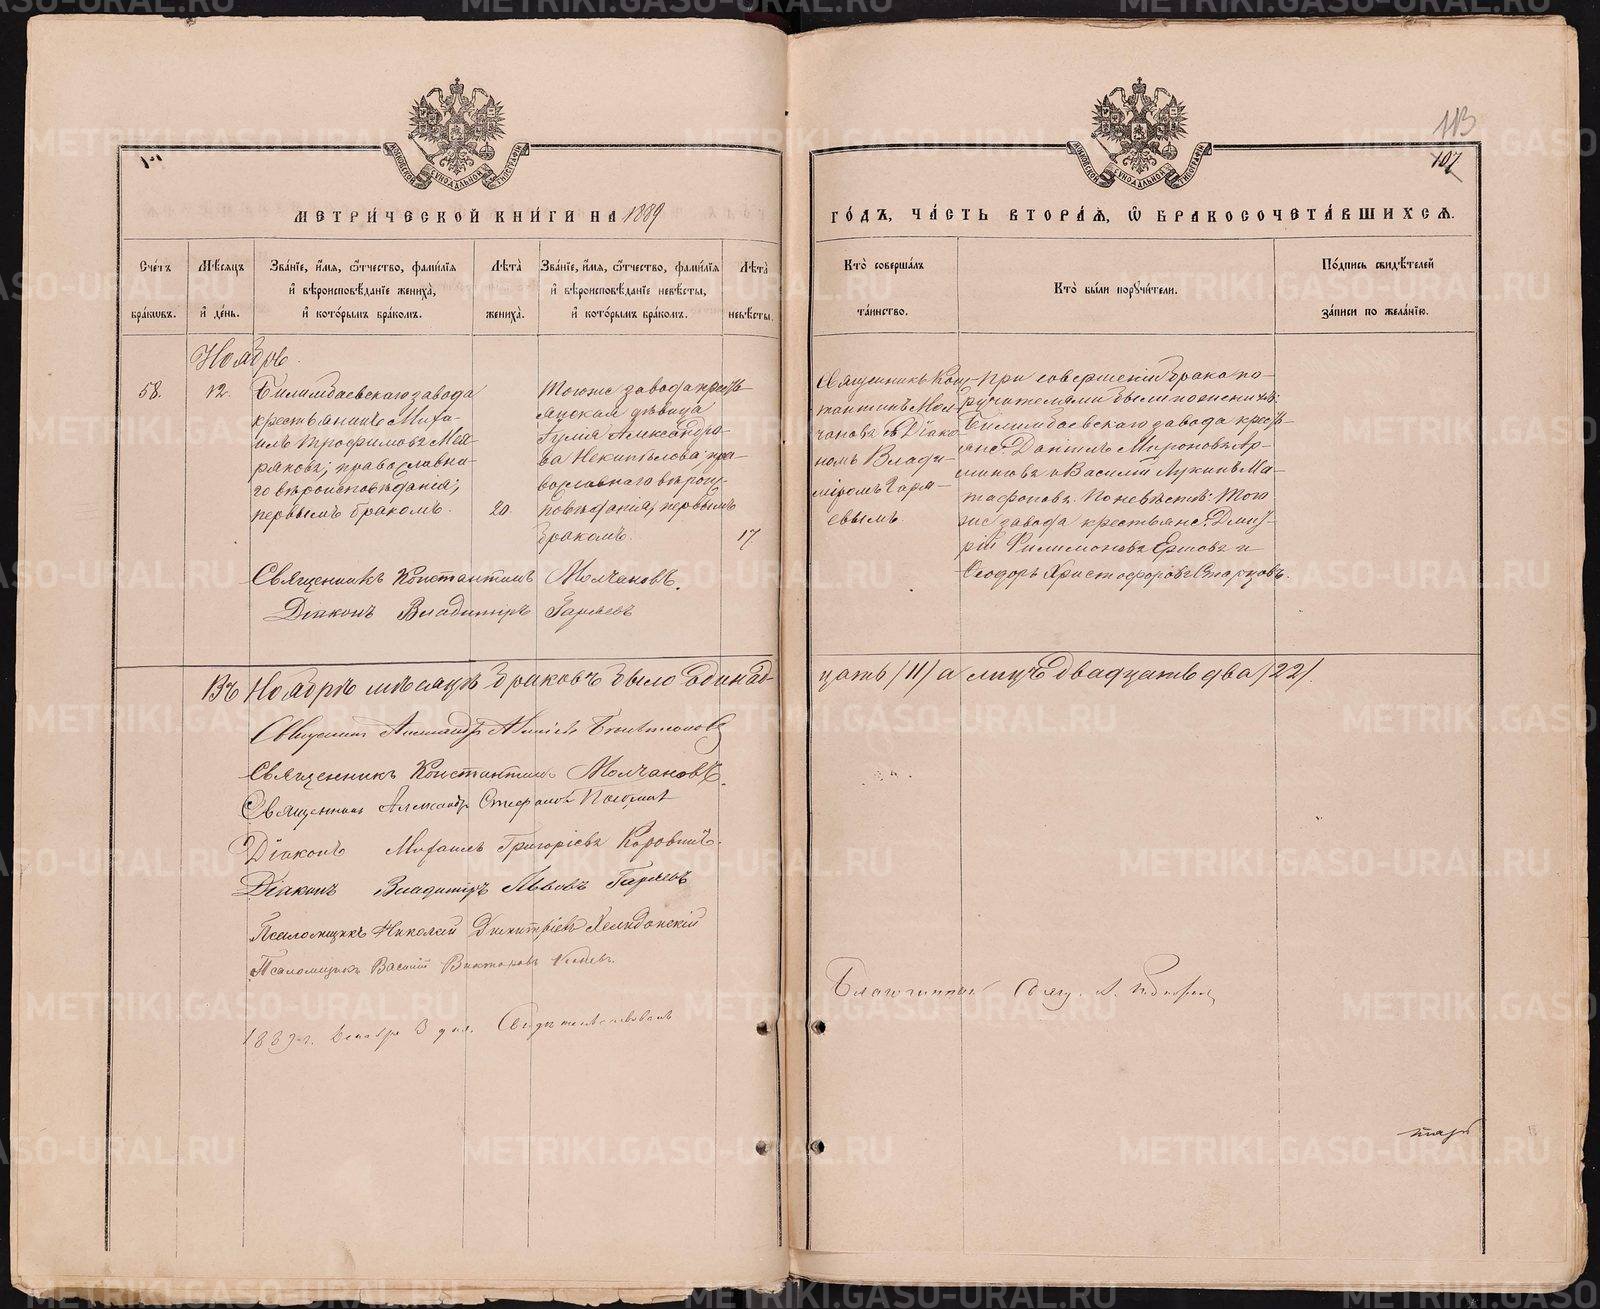 113
107
МОСКОВСКОЙ СѴНОДАЛЬНОЙ ТИПОГРАФІИ
МОСКОВСКОЙ СѴНОДАЛЬНОЙ ТИПОГРАФІИ
МЕТРИ́ЧЕСКОЙ КНИ́ГИ НА 1889
ГО́ДЪ, ЧА́СТЬ ВТОРА́Ѧ, Ѽ БРАКОСОЧЕТА́ВШИХСѦ.
Сче́тъ бра́кѡвъ.
Мѣ́сѧцъ и҆ де́нь.
Зва́нїе, и҆́мѧ, ѻ҆́тчество, фамі́лїѧ
и҆ вѣроисповѣ́данїе жениха̀,
и҆ кото́рымъ бра́комъ.
Лѣта̀ жениха̀.
Зва́нїе, и҆́мѧ, ѻ҆́тчество, фамі́лїѧ
и҆ вѣроисповѣ́данїе невѣ́сты,
и҆ кото́рымъ бра́комъ.
Лѣта̀ невѣ́сты.
Кто̀ соверша́лъ
та́инство.
Кто̀ бы́ли порꙋчи́тели.
По́дпись свидѣ́телей
за́писи по жела́нїю.
Ноябрь.
58.
12.
Билимбаевскаго завода
крестьянинъ Миха-
илъ Трофимовъ
православна-
го вѣроисповѣданія;
первымъ бракомъ.
20.
Тогоже завода кресть-
янская дѣвица
Іулія Александро-
ва Некипѣлова, пра-
вославнаго вѣроис-
повѣданія, первымъ
бракомъ.
17.
Священникъ Кон-
стантинъ Мол-
чановъ съ Діако-
номъ Влади-
міромъ Гаря-
евымъ
При совершеніи брака по-
ручителями были по женихѣ:
Билимбаевскаго завода крест-
янс. Даніилъ Мироновъ
и Василій Лукинъ Ма-
тафоновъ. По невѣстѣ: того
же завода крестьянс. Дмит-
рій Филимоновъ Ершовъ и
Ѳеодоръ Христофоровъ Старцовъ.
Священникъ Константинъ Молчановъ.
Діаконъ Владиміръ Гаряевъ
Въ Ноябрѣ мѣсяцѣ браковъ было одинад-
цать /11/ а лицъ двадцать два /22/.
Священникъ Александръ
Священникъ Константинъ Молчановъ.
Священникъ Александръ Стефановъ
Діаконъ Михаилъ Григоріевъ Коровинъ.
Діаконъ Владиміръ Львовъ Гаряевъ
Псаломщикъ Николай Димитріевъ Хелидонскій
Псаломщикъ Василій Викторовъ
1889 г. Декабря 3 дня. Свидѣтельствовалъ
Благочинный Свящ.
METRIKI.GASO-URAL.RU